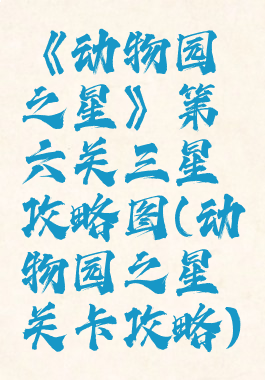 《动物园
之星》第
六关三星
攻略图(动
物园之星
关卡攻略)